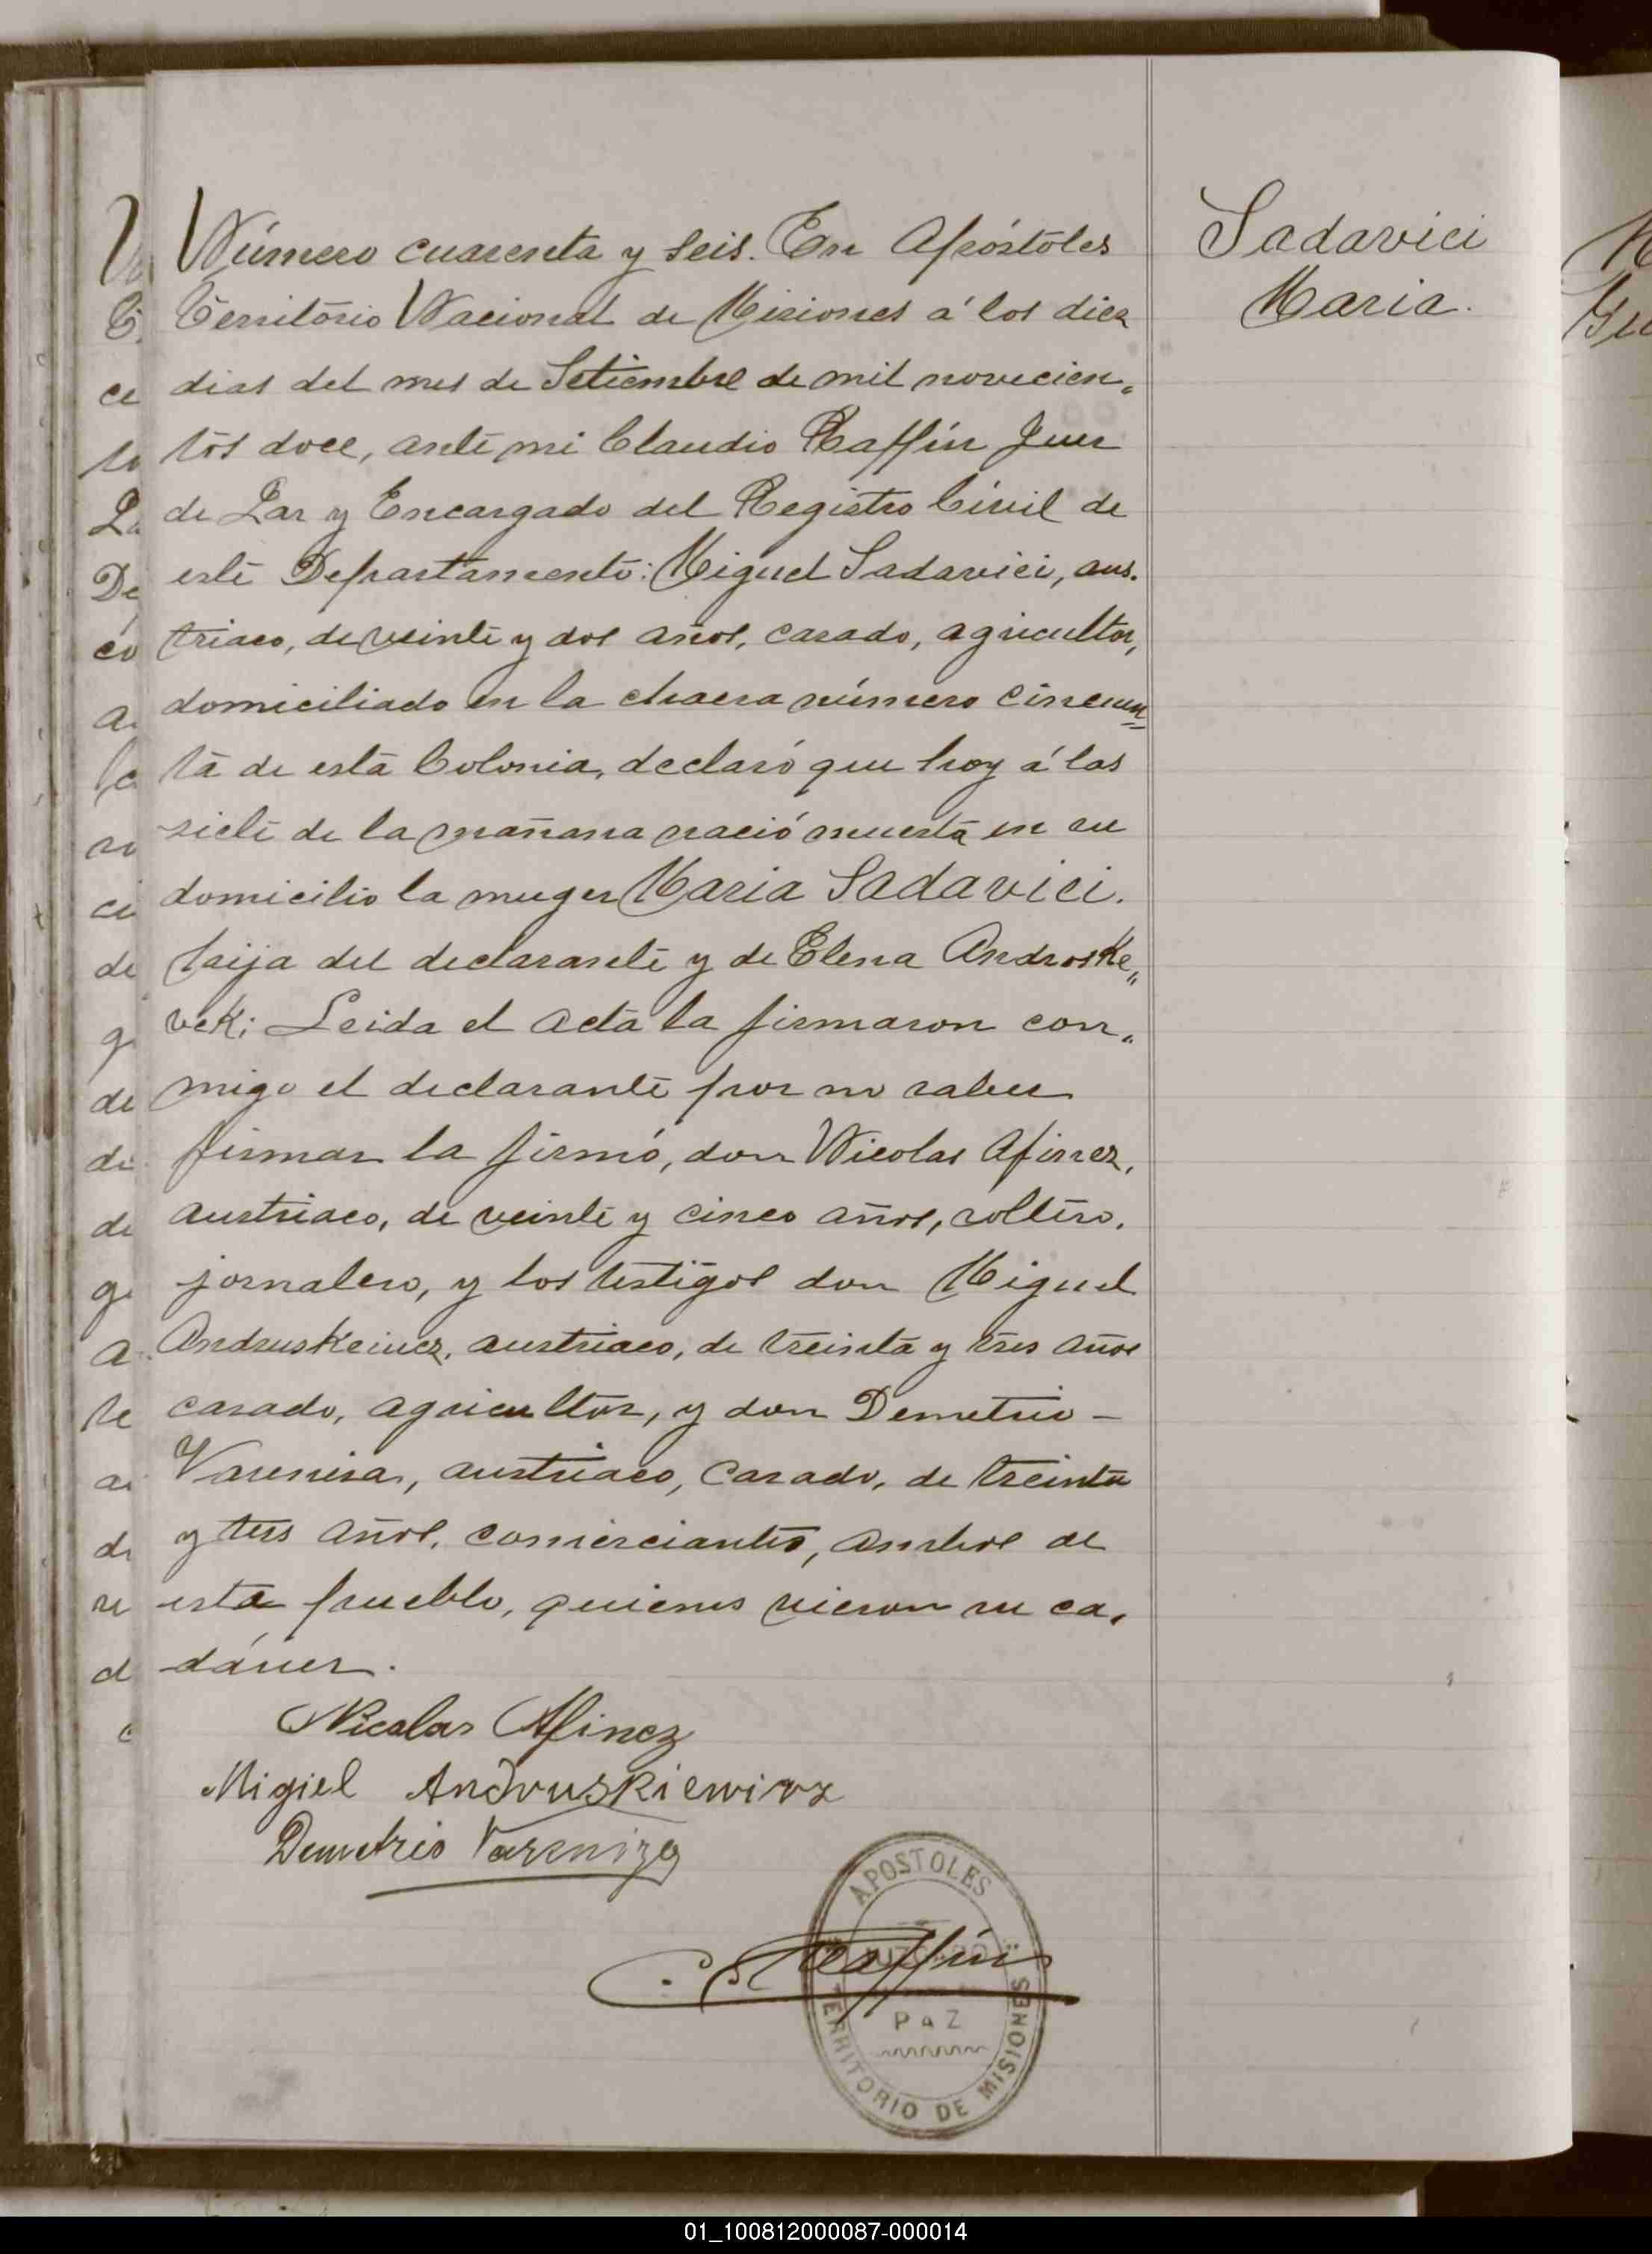 Sadavici
Maria.
Número cuarenta y seis. En Apóstoles
Territorio Nacional de Misiones á los diez
dias del mes de Setiembre de mil novecien„
tos doce, ante mi Claudio Raffin Juez
de Paz y Encargado del Registro Civil de
este Departamento: Miguel Sadavici, aus.
triaco, de veinte y dos años, casado, agricultor,
domiciliado en la chacra número cincuen=
ta de esta Colonia, declaró que hoy á las
siete de la mañana nació muerta en su
domicilio la muger Maria Sadavici.
hija del declarante y de Elena Androske„
veki Leida el acta la firmaron con„
migo el declarante por no saber
firmar la firmó, don Nicolas Afinez,
austriaco, de veinte y cinco años, soltero.
jornalero, y los testigos don Miguel
Andruskeiucz, austriaco, de treinta y tres años
casado, agricultor, y don Demetrio -
Varenisa, austriaco, casado, de treinta
y tres años, comerciante, ambos de
esta pueblo, quienes vieron su ca,
dáver.
Nicolas Afinez
Migiel Andruskiewicz
Demetrio Vareniza
C. Raffin
APOSTOLES
PAZ
TERRITORIO DE MISIONES
01_100812000087-000014